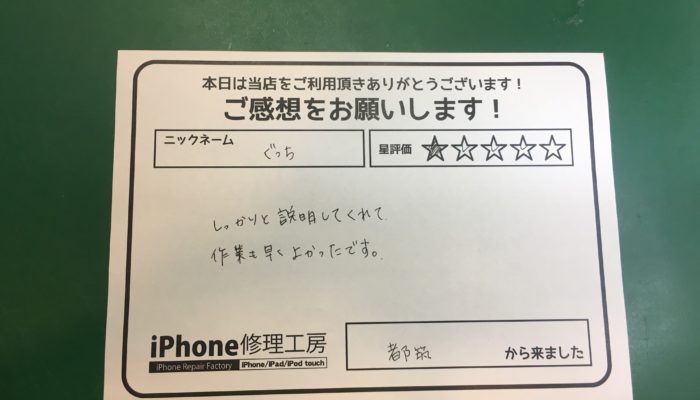 本日は当店をご利用頂きありがとうございます!
ご感想をお願いします!
ニックネーム
ぐっち
星評価
しっかりと説明してくれて
作業も早くよかったです。
iPhone修理工房
iPhone Repair Factory iPhone/iPad/iPod touch
都筑 から来ました